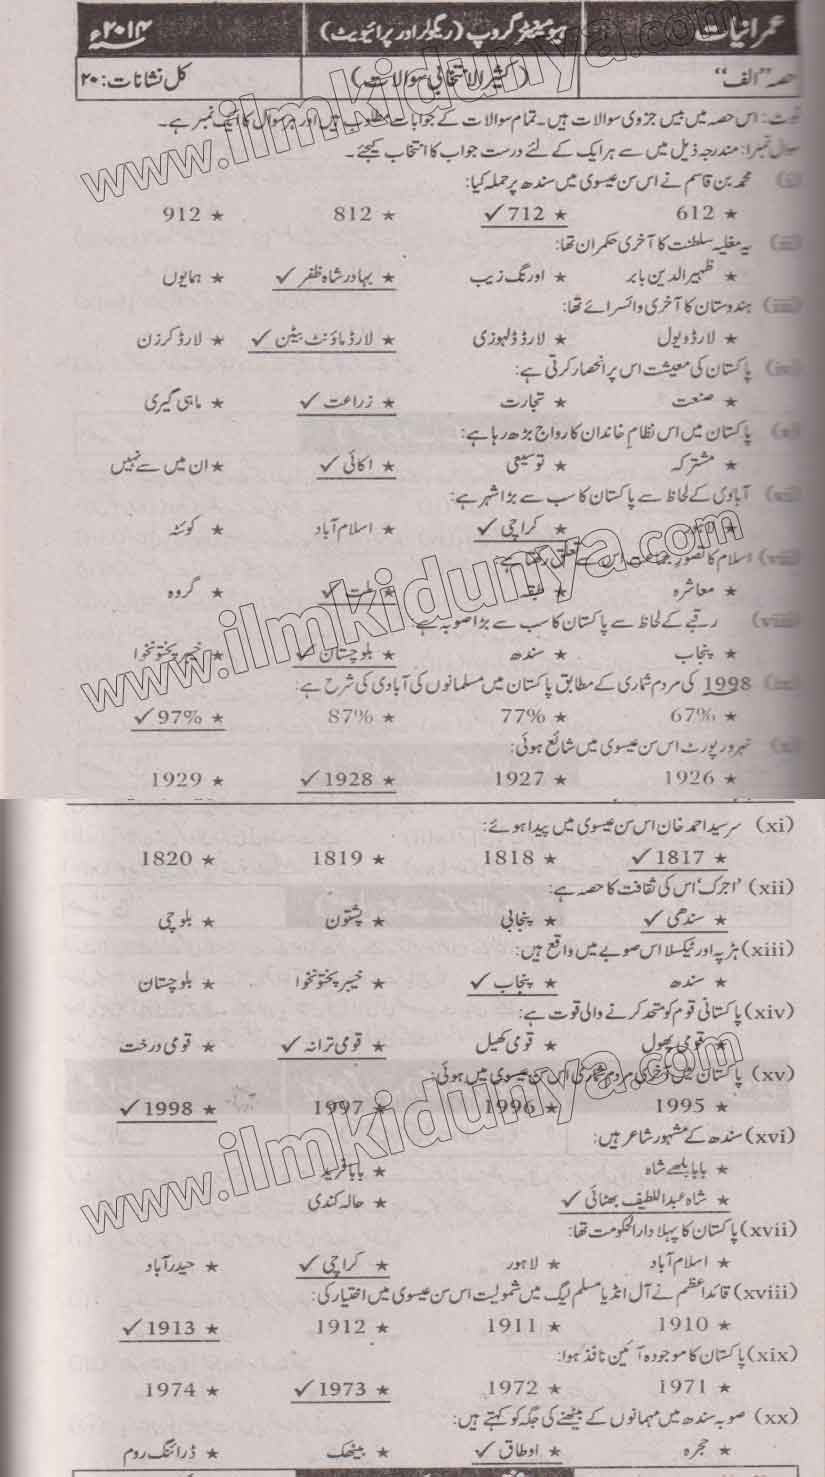 عمرانیات ہیومینیٹیز گروپ (ریگولر اور پرائیویٹ) ۲۰۱۴ء
حصہ "الف" (کثیر الانتخابی سوالات) کل نشانات: ۲۰
نوٹ: اس حصہ میں بیس جزوی سوالات ہیں۔ تمام سوالات کے جوابات مطلوب ہیں اور ہر سوال کا ایک نمبر ہے۔
سوال نمبر۱: مندرجہ ذیل میں سے ہر ایک کے لئے درست جواب کا انتخاب کیجئے۔
(i) محمد بن قاسم نے اس سن عیسوی میں سندھ پر حملہ کیا:
★ 612 ★ 712 ✓ ★ 812 ★ 912
(ii) یہ مغلیہ سلطنت کا آخری حکمران تھا:
★ ظہیر الدین بابر ★ اورنگ زیب ★ بہادر شاہ ظفر ✓ ★ ہمایوں
(iii) ہندوستان کا آخری وائسرائے تھا:
★ لارڈ ویول ★ لارڈ ڈلہوزی ★ لارڈ ماؤنٹ بیٹن ✓ ★ لارڈ کرزن
(iv) پاکستان کی معیشت اس پر انحصار کرتی ہے:
★ صنعت ★ تجارت ★ زراعت ✓ ★ ماہی گیری
(v) پاکستان میں اس نظامِ خاندان کا رواج بڑھ رہا ہے:
★ مشترکہ ★ توسیعی ★ اکائی ✓ ★ ان میں سے نہیں
(vi) آبادی کے لحاظ سے پاکستان کا سب سے بڑا شہر ہے:
★ لاہور ★ کراچی ✓ ★ اسلام آباد ★ کوئٹہ
(vii) اسلام کا تصورِ جماعت اس سے تعلق رکھتا ہے:
★ معاشرہ ★ طبقہ ★ ملت ✓ ★ گروہ
(viii) رقبے کے لحاظ سے پاکستان کا سب سے بڑا صوبہ ہے:
★ پنجاب ★ سندھ ★ بلوچستان ✓ ★ خیبر پختونخوا
(ix) 1998 کی مردم شماری کے مطابق پاکستان میں مسلمانوں کی آبادی کی شرح ہے:
★ 67% ★ 77% ★ 87% ★ 97% ✓
(x) نہرو رپورٹ اس سن عیسوی میں شائع ہوئی:
★ 1926 ★ 1927 ★ 1928 ✓ ★ 1929
(xi) سرسید احمد خان اس سن عیسوی میں پیدا ہوئے:
★ 1817 ✓ ★ 1818 ★ 1819 ★ 1820
(xii) 'اجرک' اس کی ثقافت کا حصہ ہے:
★ سندھی ✓ ★ پنجابی ★ پشتون ★ بلوچی
(xiii) ہڑپہ اور ٹیکسلا اس صوبے میں واقع ہیں:
★ سندھ ★ پنجاب ✓ ★ خیبر پختونخوا ★ بلوچستان
(xiv) پاکستانی قوم کو متحد کرنے والی قوت ہے:
★ قومی پھول ★ قومی کھیل ★ قومی ترانہ ✓ ★ قومی درخت
(xv) پاکستان میں آخری مردم شماری اس سن عیسوی میں ہوئی:
★ 1995 ★ 1996 ★ 1997 ★ 1998 ✓
(xvi) سندھ کے مشہور شاعر ہیں:
★ بابا بلھے شاہ ★ بابا فرید
★ شاہ عبداللطیف بھٹائی ✓ ★ حالہ کندی
(xvii) پاکستان کا پہلا دارالحکومت تھا:
★ اسلام آباد ★ لاہور ★ کراچی ✓ ★ حیدرآباد
(xviii) قائداعظم نے آل انڈیا مسلم لیگ میں شمولیت اس سن عیسوی میں اختیار کی:
★ 1910 ★ 1911 ★ 1912 ★ 1913 ✓
(xix) پاکستان کا موجودہ آئین نافذ ہوا:
★ 1971 ★ 1972 ★ 1973 ✓ ★ 1974
(xx) صوبہ سندھ میں مہمانوں کے بیٹھنے کی جگہ کو کہتے ہیں:
★ حجرہ ★ اوطاق ✓ ★ بیٹھک ★ ڈرائنگ روم
www.ilmkidunya.com
www.ilmkidunya.com
www.ilmkidunya.com